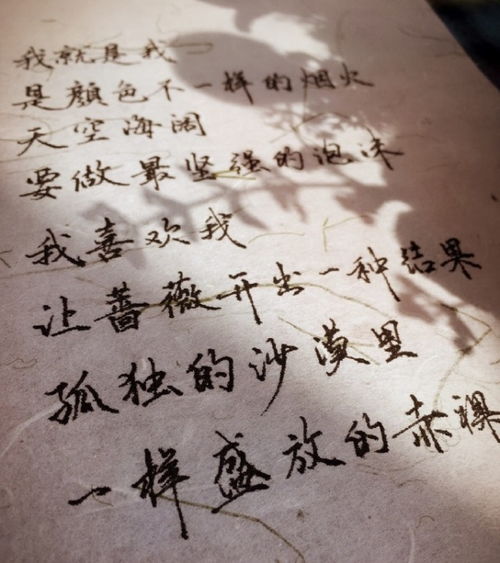 我就是我
是顏色不一样的烟火
天空海阔
要做最坚强的泡沫
我喜欢我
让蔷薇开出一种结果
孤独的沙漠里
一样盛放的赤裸